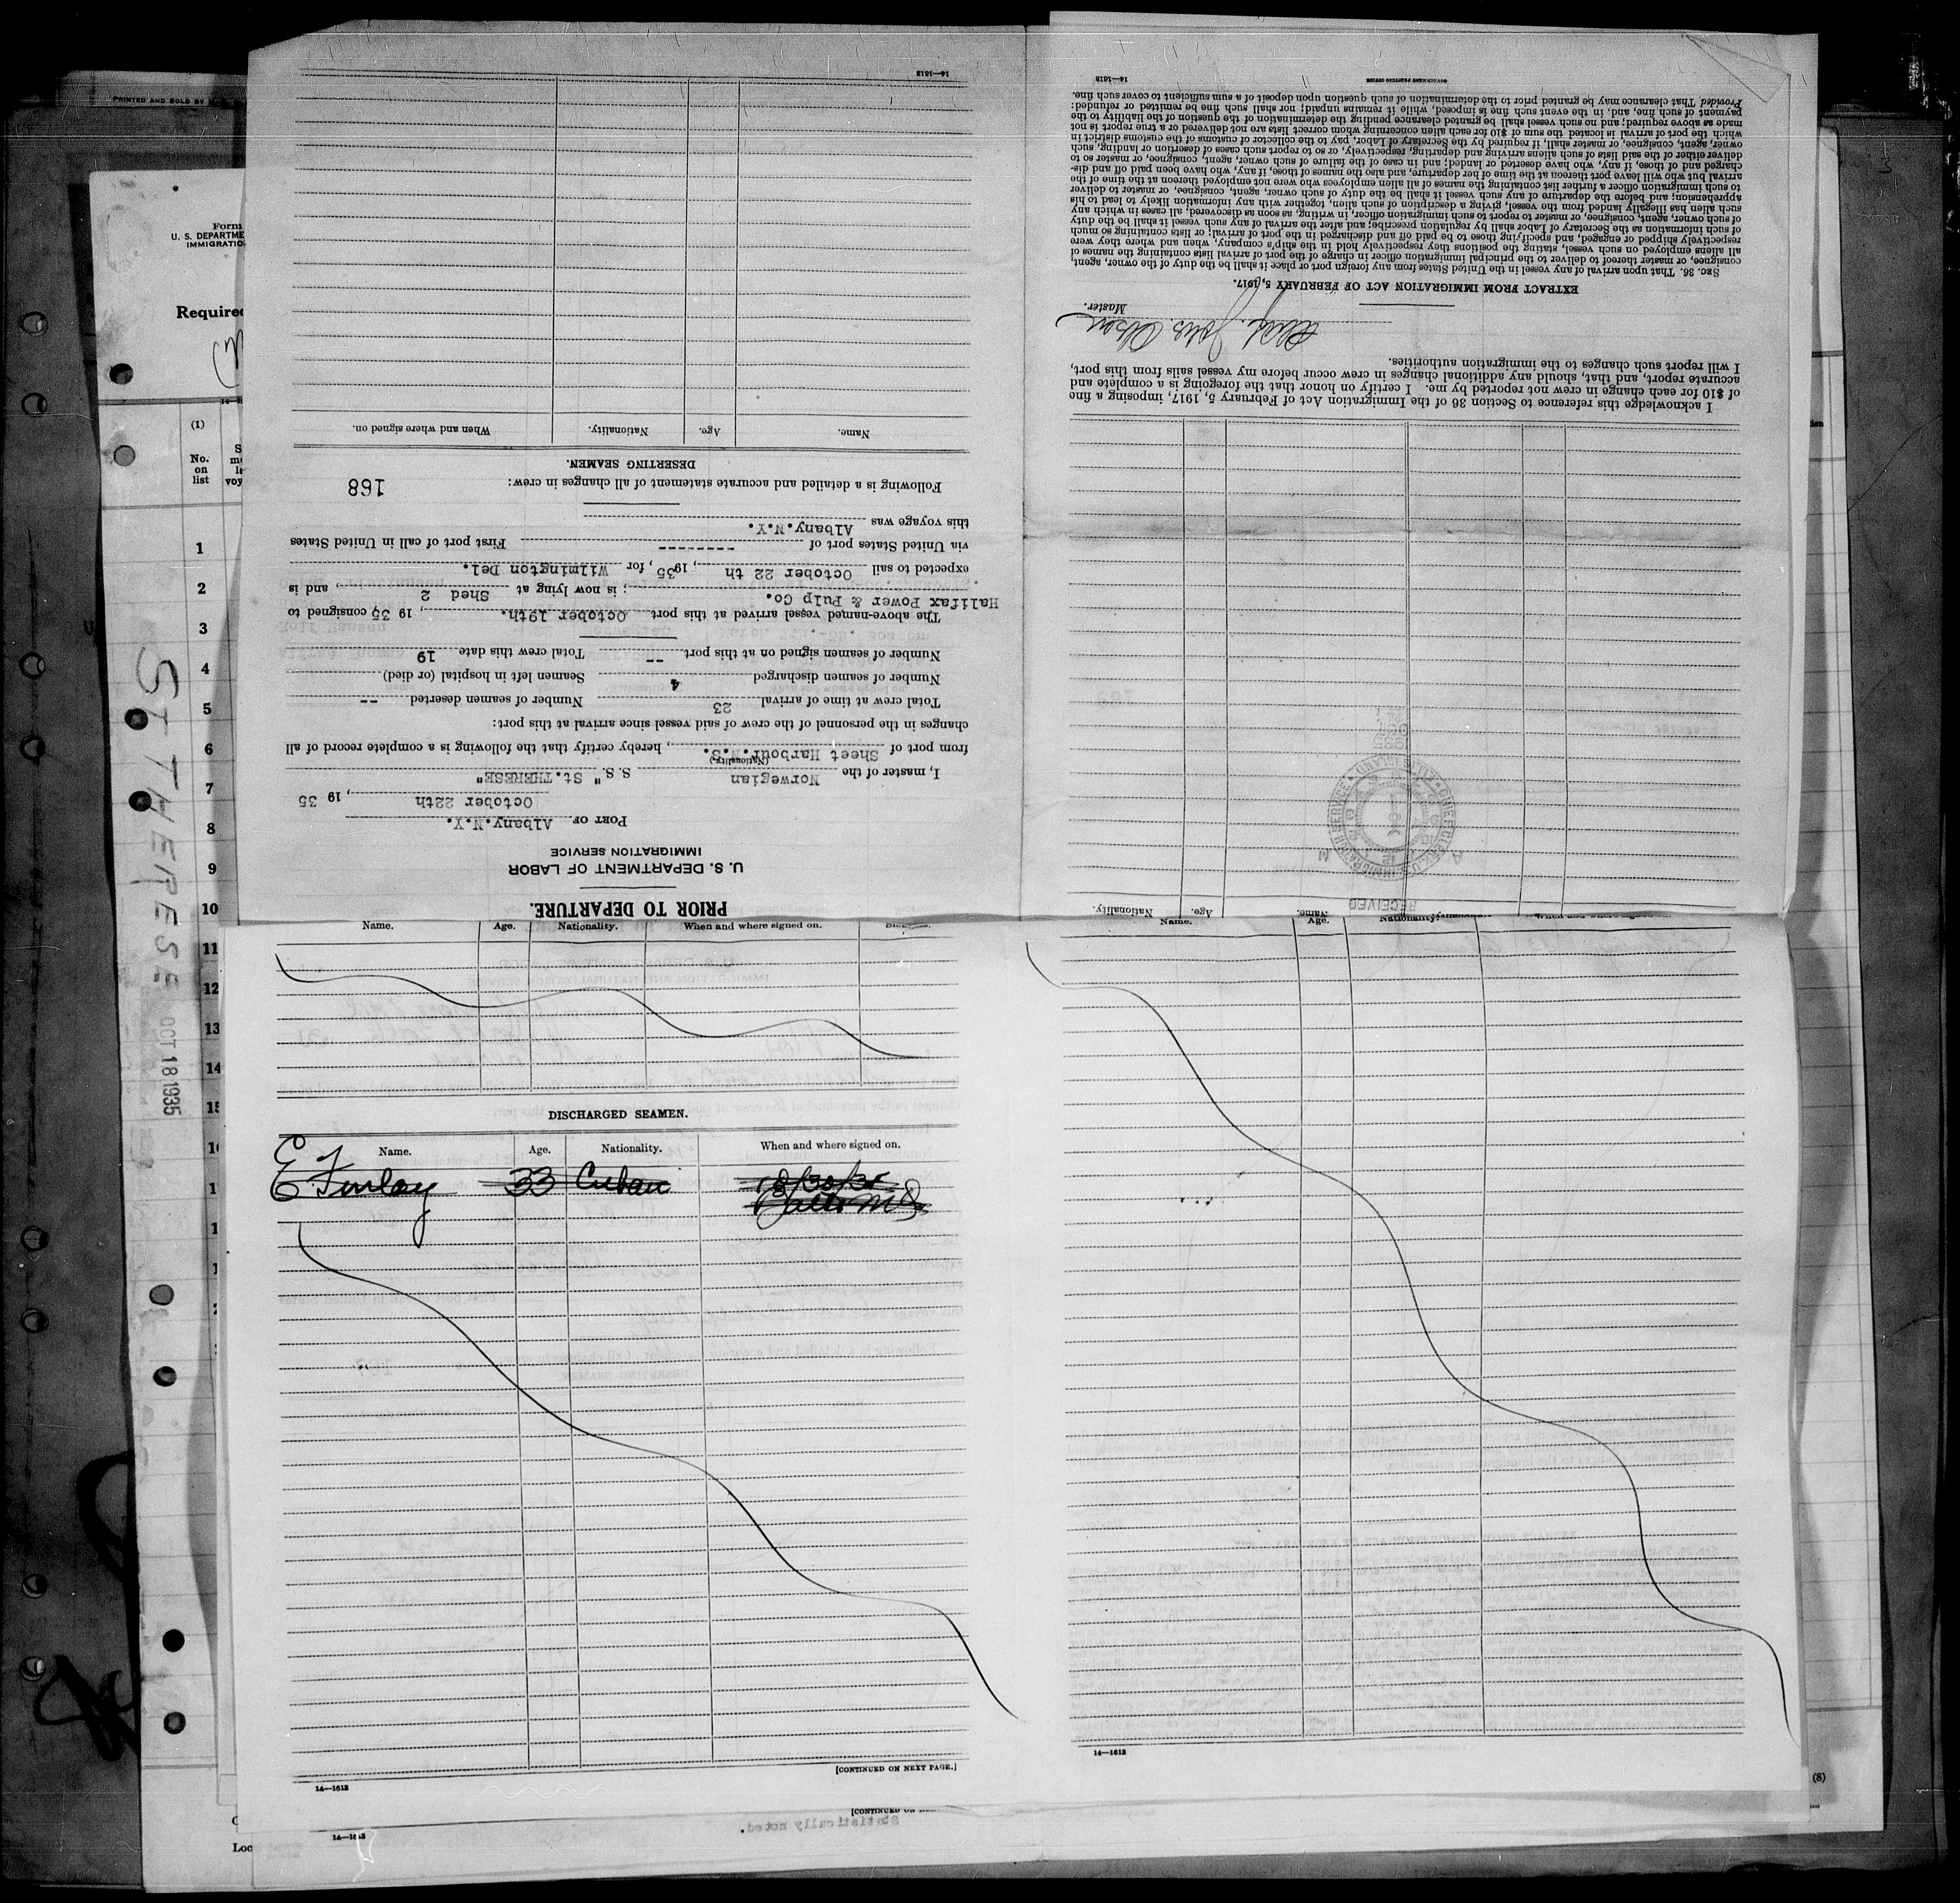 PRINTED AND SOLD BY
Form
U. S. DEPARTME
IMMIGRATIO
Require
(1)
No.
on
list
1
2
3
4
5
6
7
8
9
10
11
12
13
14
15
ST THERESE OCT 18 1935
PRIOR TO DEPARTURE.
U. S. DEPARTMENT OF LABOR
IMMIGRATION SERVICE
PORT OF Albany.N.Y.
October 22th, 19 35
I, master of the Norwegian S. S. "St.THERESE"
(Nationality)
from port of Sheet Harbour.N.S., hereby certify that the following is a complete record of all
changes in the personnel of the crew of said vessel since arrival at this port:
Total crew at time of arrival 23 Number of seamen deserted --
Number of seamen discharged 4 Seamen left in hospital (or died)
Number of seamen signed on at this port -- Total crew this date 19
The above-named vessel arrived at this port October 19th., 19 35 consigned to
Halifax Power & Pulp Co.; is now lying at Shed 2, and is
expected to sail October 22 th, 1935, for Wilmington Del.
via United States port of -------- First port of call in United States
this voyage was Albany.N.Y.
Following is a detailed and accurate statement of all changes in crew: 168
DESERTING SEAMEN.
Name. Age. Nationality. When and where signed on.
14—1613
Name. Age. Nationality.
RECEIVED
CHIEF CLERK U.S. IMMIGRATION SERVICE
ELLIS ISLAND
A M
I acknowledge this reference to Section 36 of the Immigration Act of February 5, 1917, imposing a fine
of $10 for each change in crew not reported by me. I certify on honor that the foregoing is a complete and
accurate report, and that, should any additional changes in crew occur before my vessel sails from this port,
I will report such changes to the immigration authorities.
Master.
EXTRACT FROM IMMIGRATION ACT OF FEBRUARY 5, 1917.
SEC. 36. That upon arrival of any vessel in the United States from any foreign port or place it shall be the duty of the owner, agent,
consignee, or master thereof to deliver to the principal immigration officer in charge of the port of arrival lists containing the names of
all aliens employed on such vessel, stating the positions they respectively hold in the ship's company, when and where they were
respectively shipped or engaged, and specifying those to be paid off and discharged in the port of arrival; or lists containing so much
of such information as the Secretary of Labor shall by regulation prescribe; and after the arrival of any such vessel it shall be the duty
of such owner, agent, consignee, or master to report to such immigration officer, in writing, as soon as discovered, all cases in which any
such alien has illegally landed from the vessel, giving a description of such alien, together with any information likely to lead to his
apprehension; and before the departure of any such vessel it shall be the duty of such owner, agent, consignee, or master to deliver
to such immigration officer a further list containing the names of all alien employees who were not employed thereon at the time of the
arrival but who will leave port thereon at the time of her departure, and also the names of those, if any, who have been paid off and dis-
charged and of those, if any, who have deserted or landed; and in case of the failure of such owner, agent, consignee, or master so to
deliver either of the said lists of such aliens arriving and departing, respectively, or so to report such cases of desertion or landing, such
owner, agent, consignee, or master shall, if required by the Secretary of Labor, pay to the collector of customs of the customs district in
which the port of arrival is located the sum of $10 for each alien concerning whom correct lists are not delivered or a true report is not
made as above required; and no such vessel shall be granted clearance pending the determination of the question of the liability to the
payment of such fine, and, in the event such fine is imposed, while it remains unpaid; nor shall such fine be remitted or refunded:
Provided, That clearance may be granted prior to the determination of such question upon deposit of a sum sufficient to cover such fine.
14—1613 GOVERNMENT PRINTING OFFICE
Name. Age. Nationality. When and where signed on.
DISCHARGED SEAMEN.
Name. Age. Nationality. When and where signed on.
E Finlay 33 Cuban
[CONTINUED ON NEXT PAGE.]
14—1613
Name. Age. Nationality.
14—1613
(8)
14—1613
[CONTINUED ON
Statistically noted.
Loc